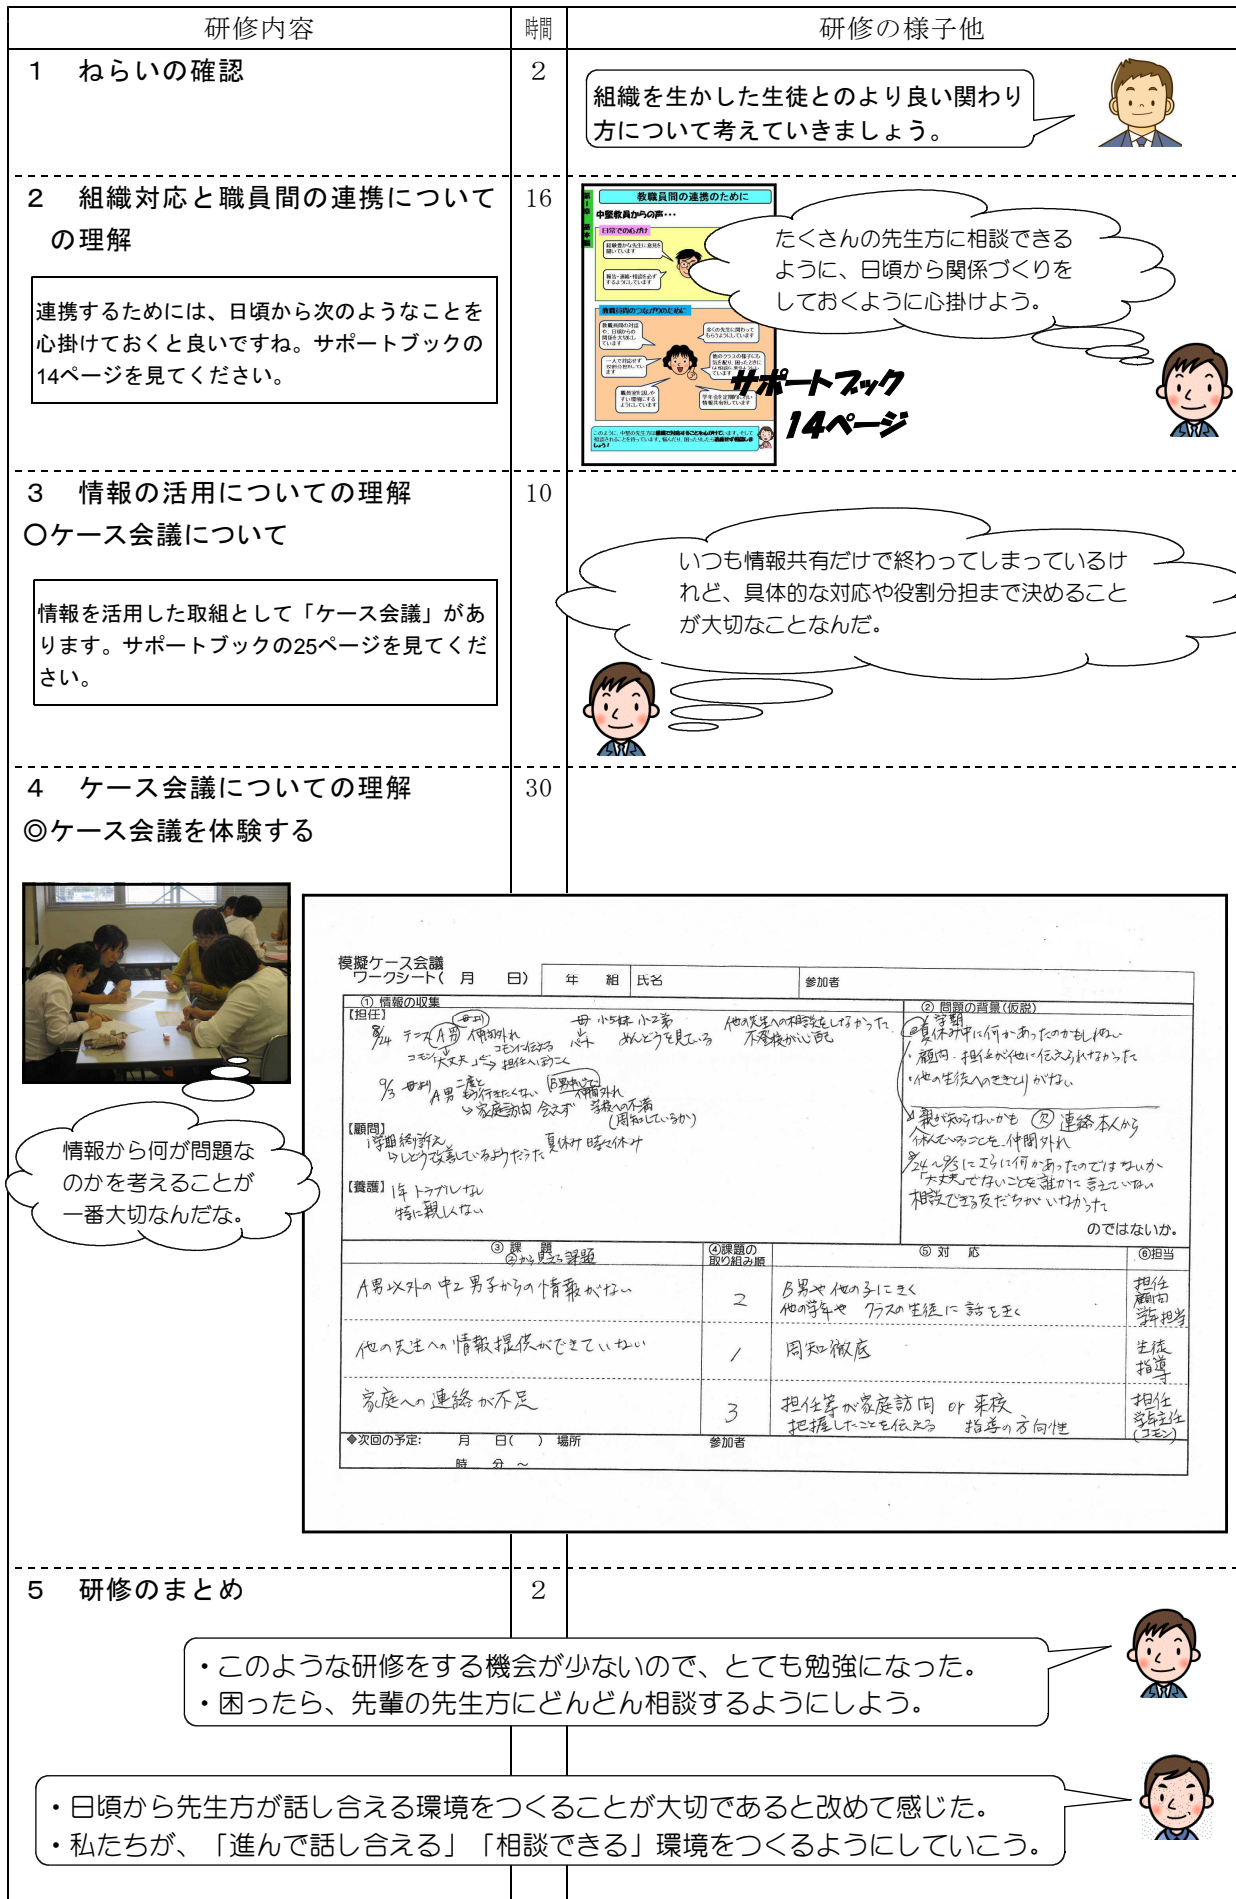 研修内容
時間
研修の様子他
1 ねらいの確認
2
組織を生かした生徒とのより良い関わり
方について考えていきましょう。
2 組織対応と職員間の連携について
の理解
16
連携するためには、日頃から次のようなことを
心掛けておくと良いですね。サポートブックの
14ページを見てください。
教職員間の連携のために
中堅教員からの声・・・
日常での心がけ
教職員間のつながりのために
サポートブック
14ページ
たくさんの先生方に相談できる
ように、日頃から関係づくりを
しておくように心掛けよう。
3 情報の活用についての理解
10
〇ケース会議について
情報を活用した取組として「ケース会議」があ
ります。サポートブックの25ページを見てくだ
さい。
いつも情報共有だけで終わってしまっているけ
れど、具体的な対応や役割分担まで決めること
が大切なことなんだ。
4 ケース会議についての理解
30
◎ケース会議を体験する
情報から何が問題な
のかを考えることが
一番大切なんだな。
模擬ケース会議
ワークシート( 月 日)
年 組 氏名
参加者
① 情報の収集
【担任】
8/24 テニス A男 仲間外れ
母 小5妹 小2弟
めんどうを見ている
他の先生への相談をしなかった
不登校が心配
9/3 母より
家庭訪問 会えず 学校への不満
(周知しているか)
【顧問】
夏休み 時々休み
【養護】 1年 トラブルなし
特に親しくない
② 問題の背景(仮説)
夏休み中に何かあったのかもしれない
・顧問・担任が他に伝えられなかった
・他の生徒へのききとりがない
親が知らないかも 連絡 本人から
8/24~9/3にさらに何かあったのではないか
「大丈夫」でないことを誰かに言えていない
相談できる友だちがいなかった
のではないか。
③ 課 題
②から見える課題
④課題の
取り組み順
⑤ 対 応
⑥担当
A男以外の中2男子からの情報がない
2
B男や他の子にきく
他の学年や クラスの生徒に話をきく
担任
顧問
学年担当
他の先生への情報提供ができていない
1
周知徹底
生徒
指導
家庭への連絡が不足
3
担任等が家庭訪問 or 来校
把握したことを伝える 指導の方向性
担任
学年主任
(コモン)
◆次回の予定: 月 日( ) 場所
参加者
時 分 ~
5 研修のまとめ
2
・このような研修をする機会が少ないので、とても勉強になった。
・困ったら、先輩の先生方にどんどん相談するようにしよう。
・日頃から先生方が話し合える環境をつくることが大切であると改めて感じた。
・私たちが、「進んで話し合える」「相談できる」環境をつくるようにしていこう。